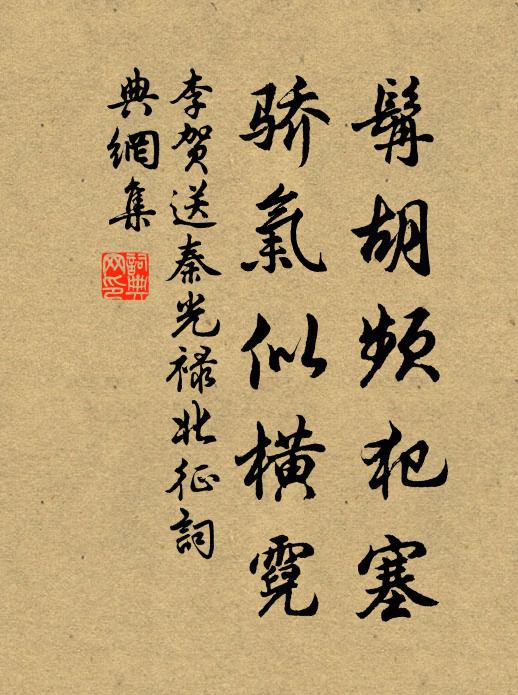 髯胡频犯塞
骄氣似橫霓
李贺送秦光禄北征詞
典網集
詞典网印